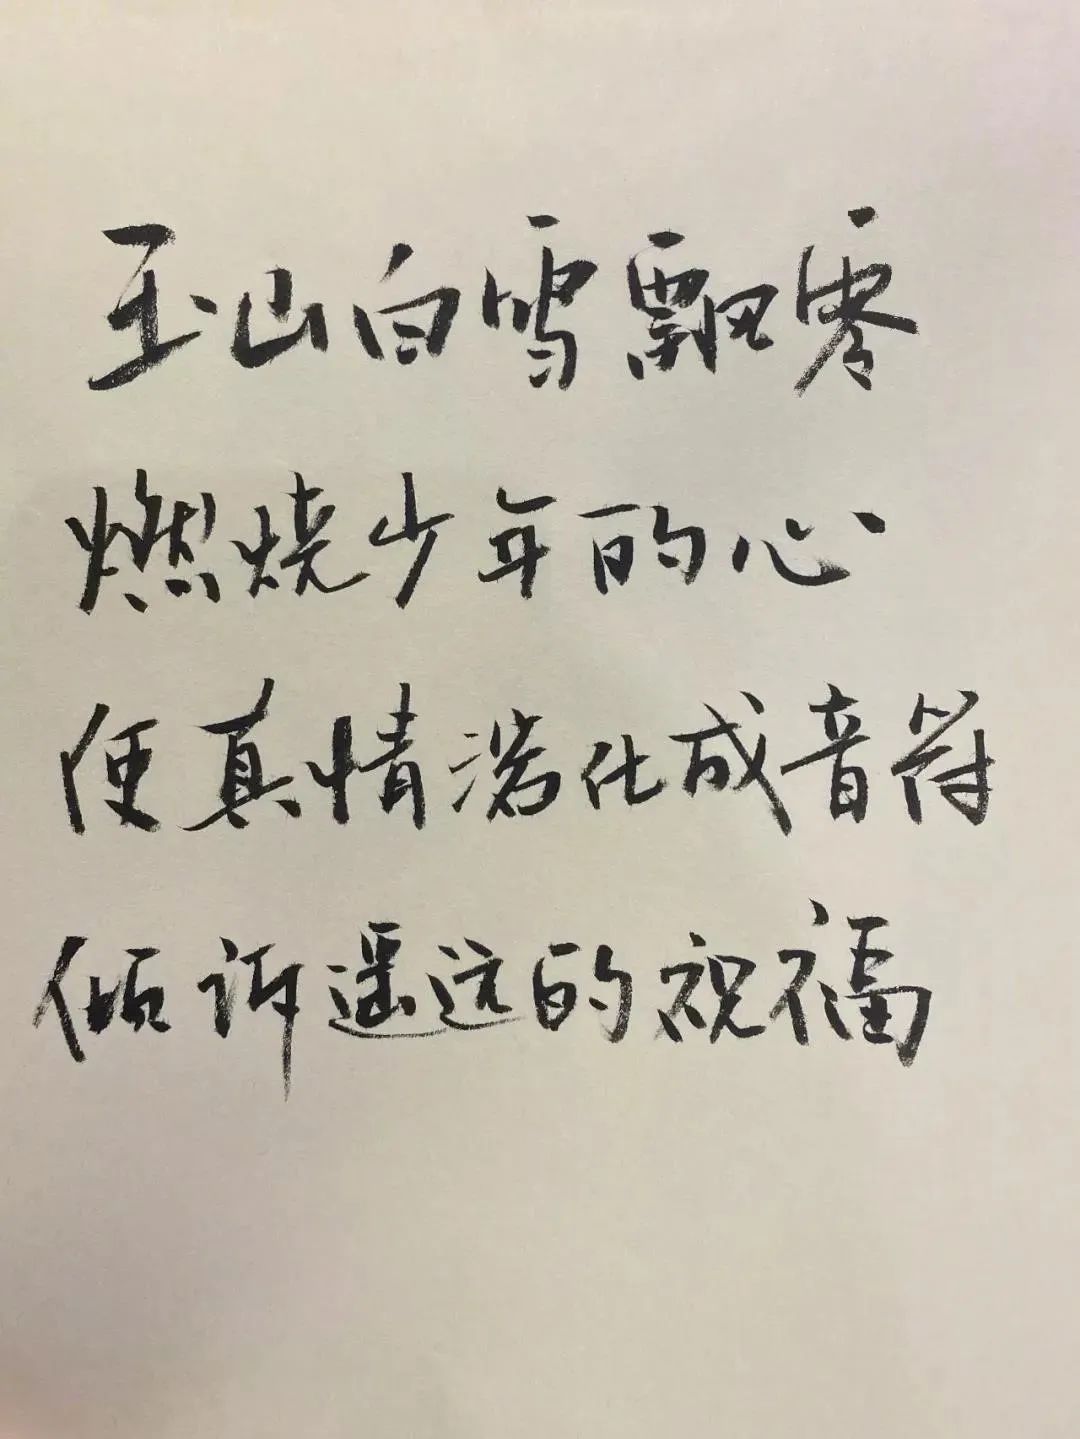 玉山白雪飘零
燃烧少年的心
使真情溶化成音符
倾诉遥远的祝福